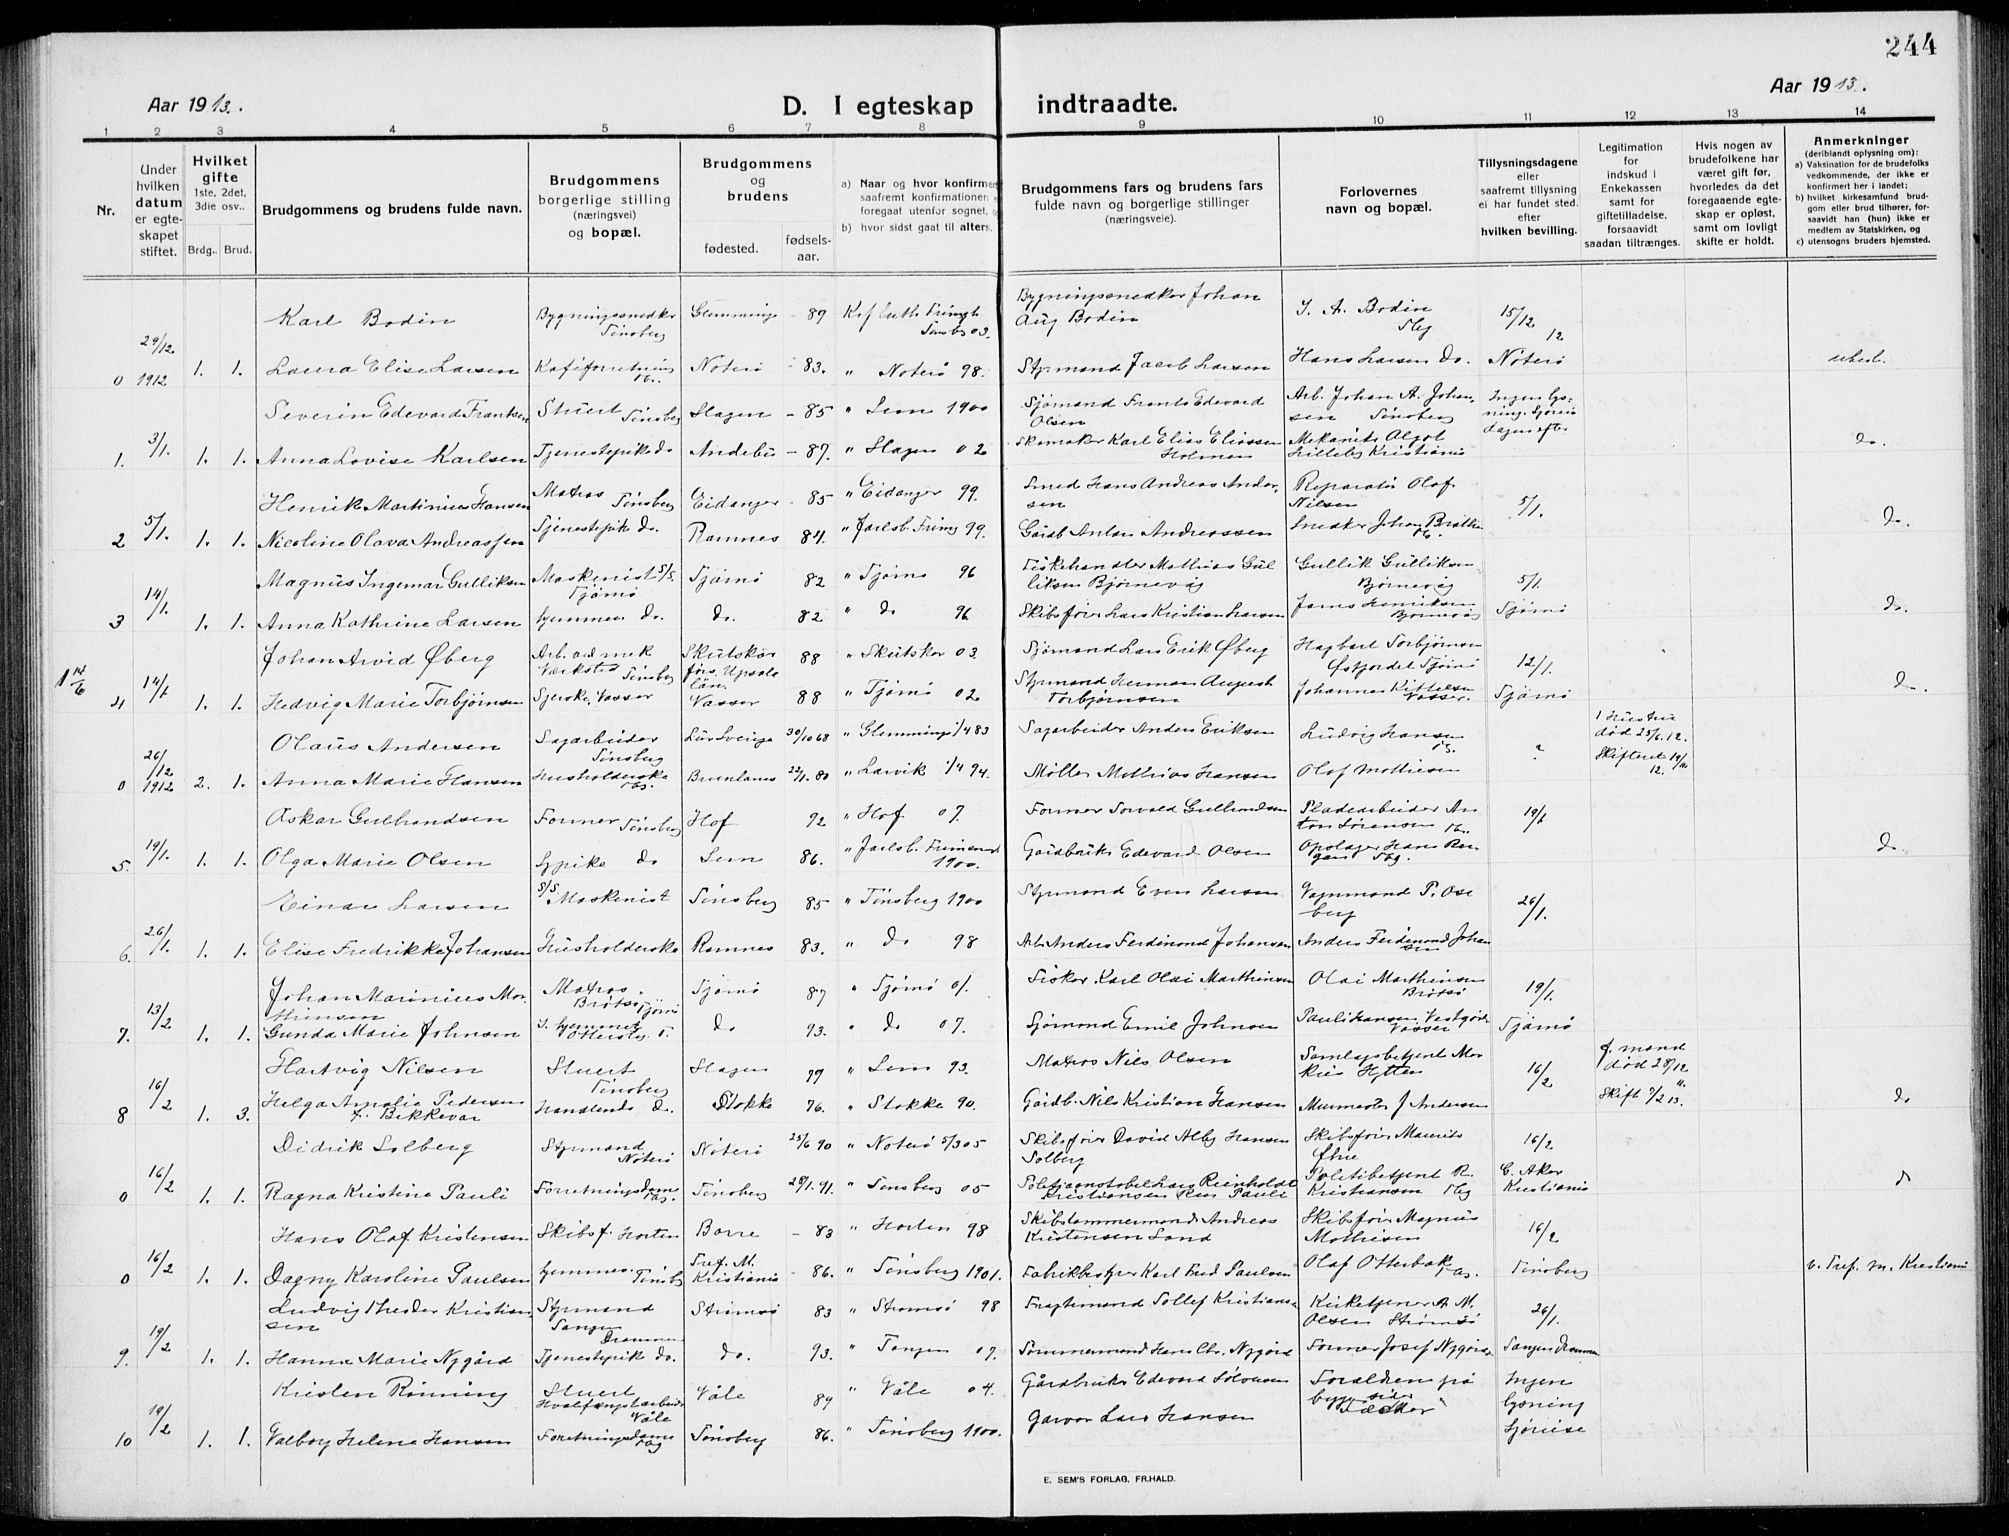 244
Aar 1913.
D. I egteskap indtraadte.
Aar 1913.
1 2 3 4 5 6 7 8 9 10 11 12 13 14
Nr.
Under hvilken datum er egteskapet stiftet.
Hvilket gifte 1ste, 2det, 3die osv..
Brdg.. Brud.
Brudgommens og brudens fulde navn.
Brudgommens borgerlige stilling (næringsvei) og bopæl.
Brudgommens og brudens
fødested. fødsels-aar.
a) Naar og hvor konfirmer
saafremt konfirmationen
foregaat utenfor sognet,
b) hvor sidst gaat til alters.
Brudgommens fars og brudens fars
fulde navn og borgerlige stillinger
(næringsveie).
Forlovernes
navn og bopæl.
Tillysningsdagene
eller
saafremt tillysning
ei har fundet sted.
efter
hvilken bevilling.
Legitimation
for
indskud i
Enkekassen
samt for
giftetilladelse,
forsaavidt
saadan tiltrænges.
Hvis nogen av
brudefolkene har
været gift før,
hvorledes da det
foregaaende egte-
skap er opløst,
samt om lovligt
skifte er holdt.
Anmerkninger
(deriblandt oplysning om):
a) Vaksination for de brudefolks
vedkommende, der ikke er
konfirmert her i landet;
b) hvilket kirkesamfund brud-
gom eller brud tilhører, for-
saavidt han (hun) ikke er
medlem av Statskirken, og
c) utensogns bruders hjemsted.
Karl Bodin Bygningssnedker Tønsberg Glemminge - 89 Bygningssnedker Johan Aug Bodin J. A. Bodin Tbg 15/12 12
0 29/12 1912 1. 1. Laura Elise Larsen Kaféforretning Nøterø - 83. " Nøterø 98. Styrmand Jacob Larsen Hans Larsen do. Nøterø
Severin Edevard Frantsen Stuert Tønsberg Slagen - 85 " Sem 1900 Sjømand Frants Edevard Olsen Arb. Johan A. Johansen Tønsberg
1. 3/1. 1. 1. Anna Lovise Karlsen Tjenestepike do Andebu - 87. " Slagen 02 Skomaker Karl Elias Eliassen Holman Kristiania do.
Henrik Martinius Hansen Matros Tønsberg Eidanger - 85 " Eidanger 99. Smed Hans Andreas Andersen Reparatør Olaf Nilsen 5/1.
2 5/1. 1. 1. Nicoline Olava Andreassen Tjenestepik do. Ramnes 84. " Jarlsb. Frimg 99. Gårdb Anton Andreassen Snedker Johan Do.
Magnus Ingemar Gulliksen Maskenist S/S. Tjømø Tjømø 82 " Tjømø 96 Fiskehandler Mathias Gulliksen Bjørnevåg Gullik Gulliksen Bjørnevåg 5/1.
3 14/1. 1. 1. Anna Kathrine Larsen hjemmen do. do. 82 " do 96 Skibsfører Lars Kristian Larsen Henriksen Bjørnevåg Tjømø do.
Johan Arvid Øberg Arb. ved mek Værksted Tønsberg Skutskär Upsala län 88 " Skutskär 03. Sjømand Lars Erik Øberg Hagbart Torbjørnsen Tjømø 12/1.
4 14/1 1. 1. Hedvig Marie Torbjørnsen Vasser Vasser 88 " Tjømø 02 Styrmand Herman August Torbjørnsen Johannes Kittilsen Vasser. Tjømø Do.
Olaus Andersen Sagarbeider Tønsberg 30/10 68 " Glemminge 1/4 83 Sagarbeider Anders Eriksen Ludvig Hansen 1 Hustru død 25/6. 12.
0 26/12 1912 2. 1. Anna Marie Hansen Husholderske Brunlanes 22/1. 80 " Larvik 1/4 94. Møller Mathias Hansen Olaf Mathisen
Oskar Gulhandsen Former Tønsberg Hof 92 " Hof 07. Former Torvald Gulhandsen Pladearbeider Anton Sørensen 19/1
5. 19/1. 1. 1. Olga Marie Olsen Sypike do Sem 86. " Jarlsb. 1900. Gårdbruker Edevard Olsen do
Einar Larsen S/S. Maskenist Tønsberg 85 " Tønsberg 1900 Styrmand Even Larsen Vognmand P. Oseberg 26/1.
6. 26/1. 1. 1. Elise Fredrikke Johansen Husholderske Ramnes 83. " do 98 Arb. Anders Ferdinand Johansen Anders Ferdinand Johansen
Johan Marinius Marthinsen Matros. Brøtsø Tjømø Tjømø 87 " Tjømø 01. Fisker Karl Olai Marthinsen Olai Marthinsen Brøtsø 19/1.
7. 13/2 1. 1. Gunda Marie Johnsen do 93. " do 07. Sjømand Emil Johnsen Vasser Tjømø
Hartvig Nilsen Stuert Tønsberg Slagen 79 " Sem 93. Matros Nils Olsen Samlagsbetjent Hytten 16/2 f. mand død 28/12
8 16/2 1. 3. Helga Amalie Pedersen f. Bikkevar Handlende do. Stokke 76. " Stokke 90. Gårdb. Nils Kristian Hansen Murmester J Andersen Skift 7/2 13. do
Didrik Solberg Styrmand Nøterø Nøterø 25/6 90 " Nøterø 5/3 05 Skibsfører David Alby Hansen Solberg Skibsfører Maurits 16/2
0 16/2 1. 1. Ragna Kristine Pauli Forretningsdame Tønsberg 28/1. 91. " Tønsberg 05 Kristiansen Pauli Politibetjent R. Kristiansen Tbg Kristiania
Hans Olaf Kristensen Skibsf. Horten Borre - 83 " Horten 98 Skibstømmermand Andreas Kristensen Sand Skibsfører Magnus Mathisen 16/2
0 16/2 1. 1. Dagny Karoline Paulsen hjemme. Tønsb Tref. M. Kristiania - 86. " Tønsberg 1901. Karl Fred Paulsen Olaf Otterbek Tønsberg v. Tref. M. Kristiania
Ludvig Theodor Kristiansen Styrmand Tangen Drammen Strømsø 83 " Strømsø 98 Fragtemand Tollef Kristiansen Kirketjener A. M. Olsen Strømsø 26/1.
9. 19/2 1. 1. Hanna Marie Nygård Tjenestepik do. do. 93. " Tangen 07. Tømmermand Hans Chr. Nygård Former Josef Nygård Tangen Drammen
Kristen Rønning Stuert Hvalfangstarbeider Våle Våle 89 " Våle 04. Gårdbruker Edevard Forældrene på begge sider Ingen lysning Sjøreise
10 19/2 1. 1. Valborg Helene Hansen Forretningsdame Tønsberg 86. " Tønsberg 1900. Garver Lars Hansen
E. SEM'S FORLAG, FR.HALD.